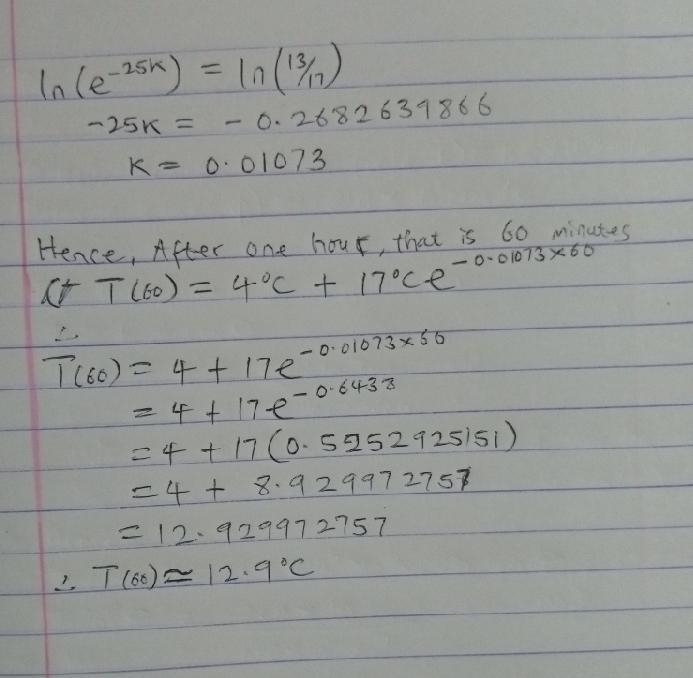 ln(e^-25K) = ln(13/17)
-25K = - 0.2682639866
K = 0.01073
Hence, After one hour, that is 60 minutes
T(60) = 4°C + 17°C e^-0.01073×60
∴
T(60) = 4 + 17e^-0.01073×60
= 4 + 17e^-0.6438
= 4 + 17(0.5252925151)
= 4 + 8.929972757
= 12.929972757
∴ T(60) ≈ 12.9°C